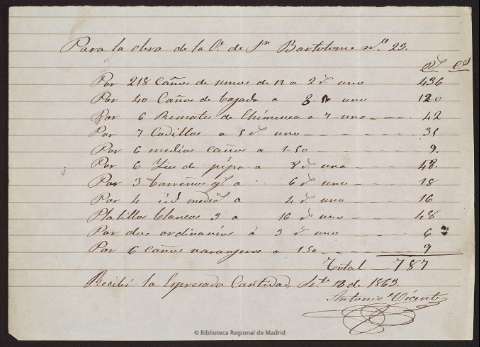 Para la obra de la C.e de S.n Bartolome n.o 22.
Rs Cs
Por 218 caños de a 2 rs uno 436
Por 40 Caños de bajada a 3 rs uno 120
Por 6 Remates de Chimenea a 7 uno 42
Por 7 Codillos a 5 rs uno 35
Por 6 medios caños a 1 50 9
Por 6 de a 8 rs una 48
Por 3 barreños a 6 rs uno 18
Por 4 id a 4 rs uno 16
Platillos blancos 3 a 16 rs uno 48
Por dos ordinarios a 3 rs uno 6
Por 6 caños naranjeros a 1 50 9
Total 787
Recibí la Espresada Cantidad de 1863
Antonio Vicente
© Biblioteca Regional de Madrid